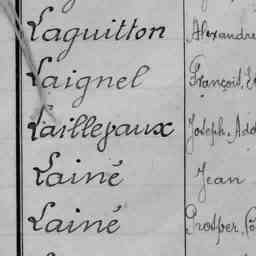 Laguitton Alexandre
Laignel François, E
Laillepaux Joseph, Ado
Lainé Jean
Lainé Prosper, Cô